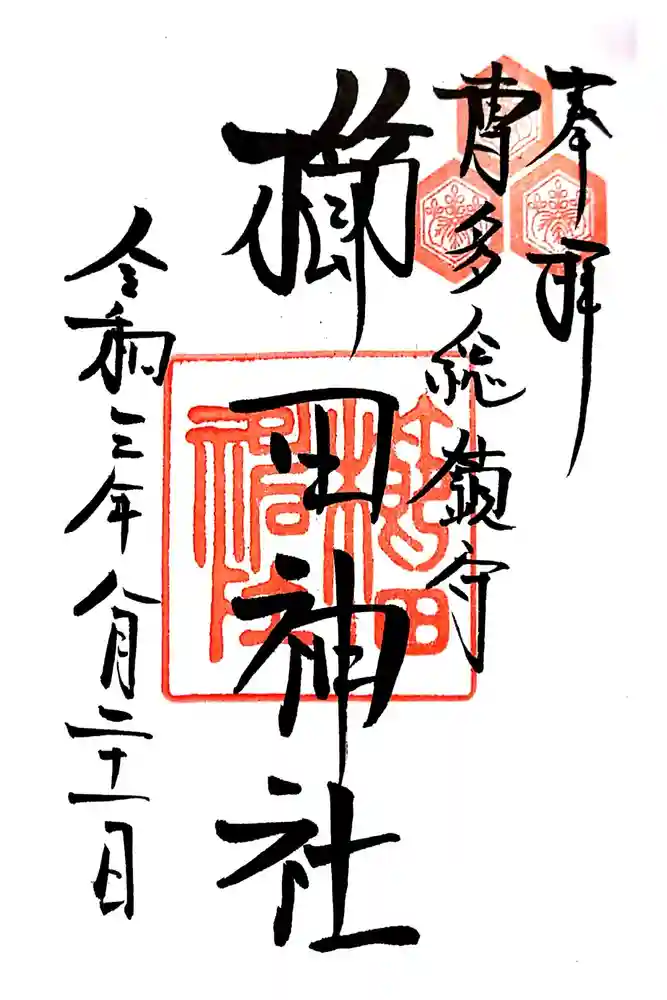 奉拝
博多総鎮守
櫛田神社
令和三年八月二十一日